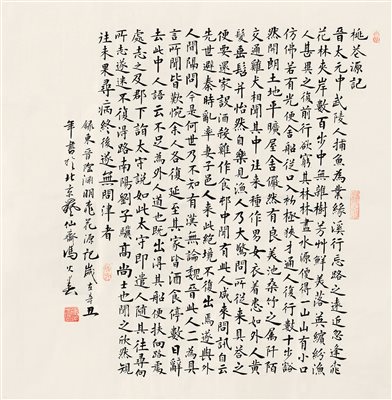 桃花源記
晉太元中武陵人捕魚為業緣溪行忘路之遠近忽逢桃
花林夾岸數百步中無雜樹芳艸鮮美落英繽紛漁
人甚異之復前行欲窮其林林盡水源便得一山山有小口
仿佛若有光便舍船從口入初極狹才通人復行數十步豁
然開朗土地平曠屋舍儼然有良田美池桑竹之屬阡陌
交通雞犬相聞其中往來種作男女衣著悉如外人黃
髮垂髫并怡然自樂見漁人乃大驚問所從來具答之
便要還家設酒殺雞作食邨中聞有此人咸來問訊自云
先世避秦時亂率妻子邑人來此絕境不復出焉遂與外
人間隔問今是何世乃不知有漢無論魏晉此人一一為具
言所聞皆歎惋余人各復延至其家皆出酒食停數日辭
去此中人語云不足為外人道也既出得其船便扶向路處
處志之及郡下詣太守說如此太守即遣人隨其往尋向
所志遂迷不復得路南陽劉子驥高尚士也聞之欣然規
往未果尋病終後遂無問津者
錄東晉陶淵明桃花源記歲在辛丑
年書於北京飛仙齋馮